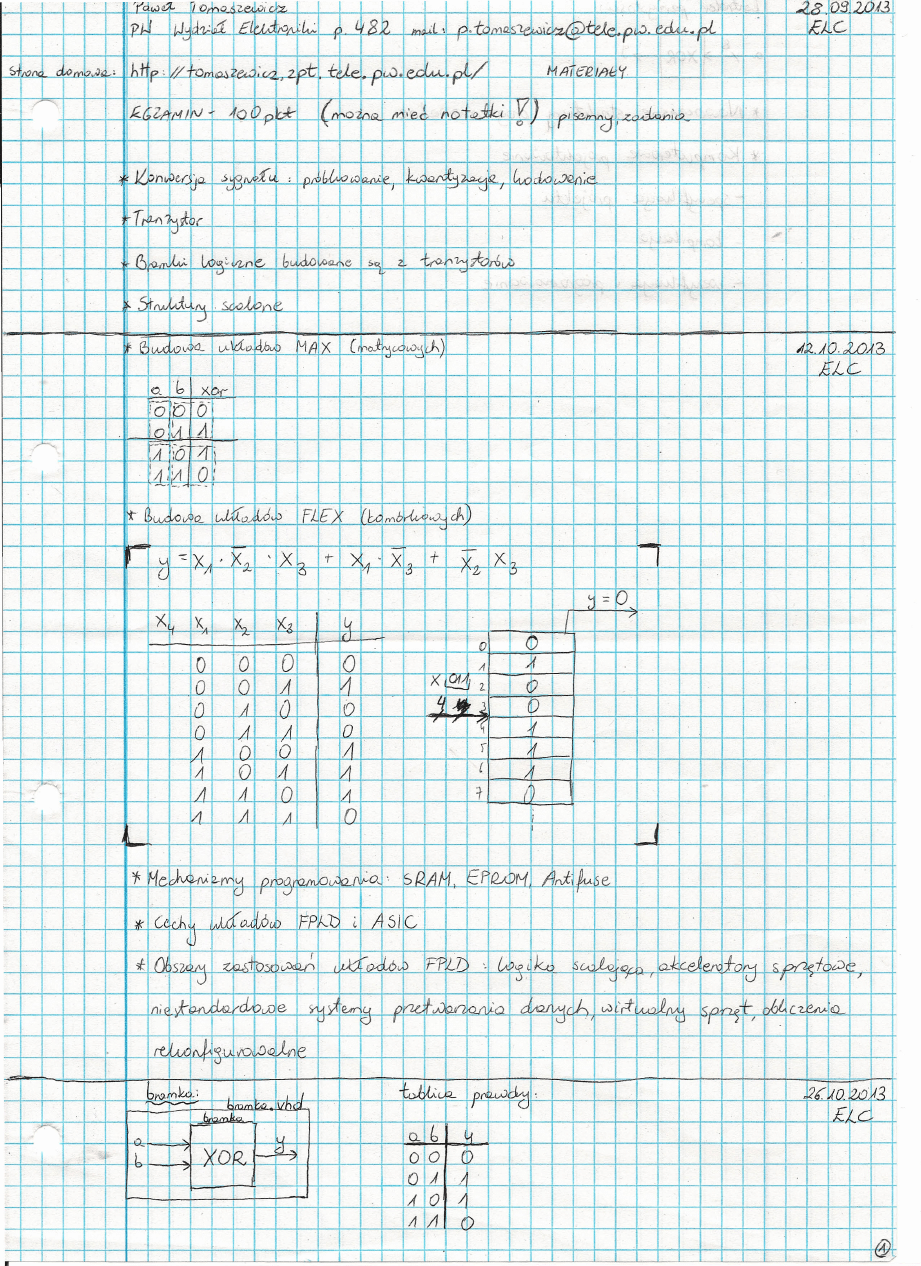 Paweł Tomaszewicz 28.09.2013
PW Wydział Elektroniki p. 482 mail: p.tomaszewicz@tele.pw.edu.pl ELC
strona domowa: http://tomaszewicz.zpt.tele.pw.edu.pl/ MATERIAŁY
EGZAMIN - 100 pkt (można mieć notatki!) pisemny, zadania
* Konwersja sygnału: próbkowanie, kwantyzacja, kodowanie
* Tranzystor
* Bramki logiczne budowane są z tranzystorów
* Struktury scalone
* Budowa układów MAX (matrycowych) 12.10.2013
ELC
a b xor
0 0 0
0 1 1
1 0 1
1 1 0
* Budowa układów FLEX (komórkowych)
y = x₁ · x̅₂ · x₃ + x₁ · x̅₃ + x̅₂ x₃
y = 0
x₄ x₁ x₂ x₃ y
0 0 0 0
0 0 1 1
0 1 0 0
0 1 1 0
1 0 0 1
1 0 1 1
1 1 0 1
1 1 1 0
x 011
4
0 0
1 1
2 0
3 0
4 1
5 1
6 1
7 0
* Mechanizmy programowania: SRAM, EPROM, Antifuse
* Cechy układów FPLD i ASIC
* Obszary zastosowań układów FPLD: logika scalająca, akceleratory sprzętowe,
niestandardowe systemy przetwarzania danych, wirtualny sprzęt, obliczenia
rekonfigurowalne
bramka: tablica prawdy: 26.10.2013
ELC
bramka.vhd
bramka
a
b
XOR
y
a b y
0 0 0
0 1 1
1 0 1
1 1 0
1